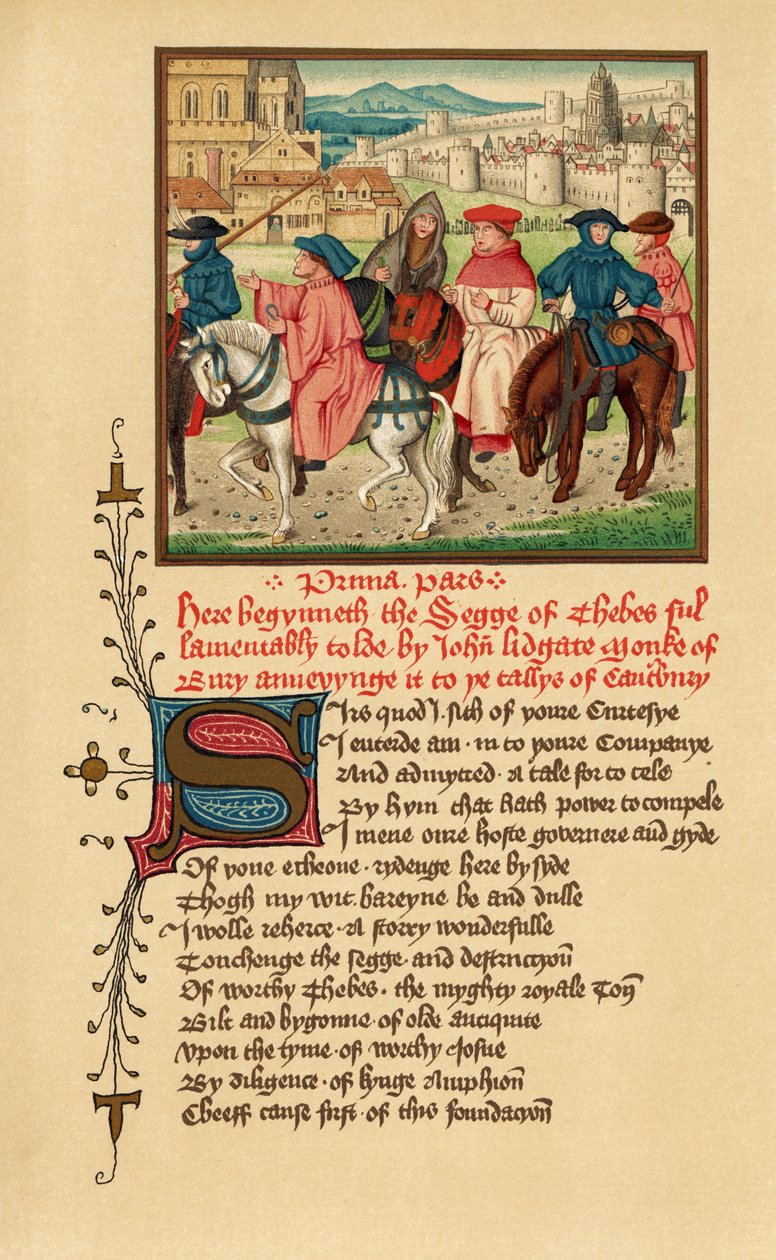 Prima. pars
Here begynneth the Segge of Thebes ful
lamentably tolde by John lidgate Monke of
Bury annexynge it to ye tallys of Cauntbury
Sirs quod I. sith of youre Curtesye
I enterde am. in to youre Companye
And admytted. A tale for to tele
By hym that hath power to compele
I mene oure hoste governere and gyde
Of youe echeone. rydenge here by syde
Thogh my wit. bareyne be and dulle
I wolle reherce. A story wonderfulle
Touchenge the segge. and destruccyon
Of worthy Thebes. the myghty royale Ton
Bilt and bygonne. of olde antiquite
Vpon the tyme. of worthy Josue
By diligence. of kynge Amphion
Cheeff cause first. of this foundacyon